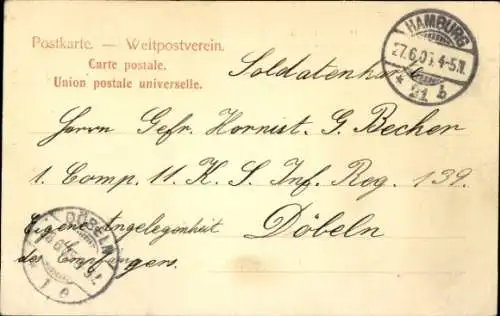 Postkarte. — Weltpostverein.
Carte postale.
Union postale universelle.
HAMBURG
27.6.05. 4-5.N.
* 21 b
Soldatenkarte
Herrn Gefr. Hornist. G. Becher
1. Comp. 11. K. S. Inf. Reg. 139.
Eigene Angelegenheit
des Empfängers.
Döbeln
DÖBELN
* 1 e